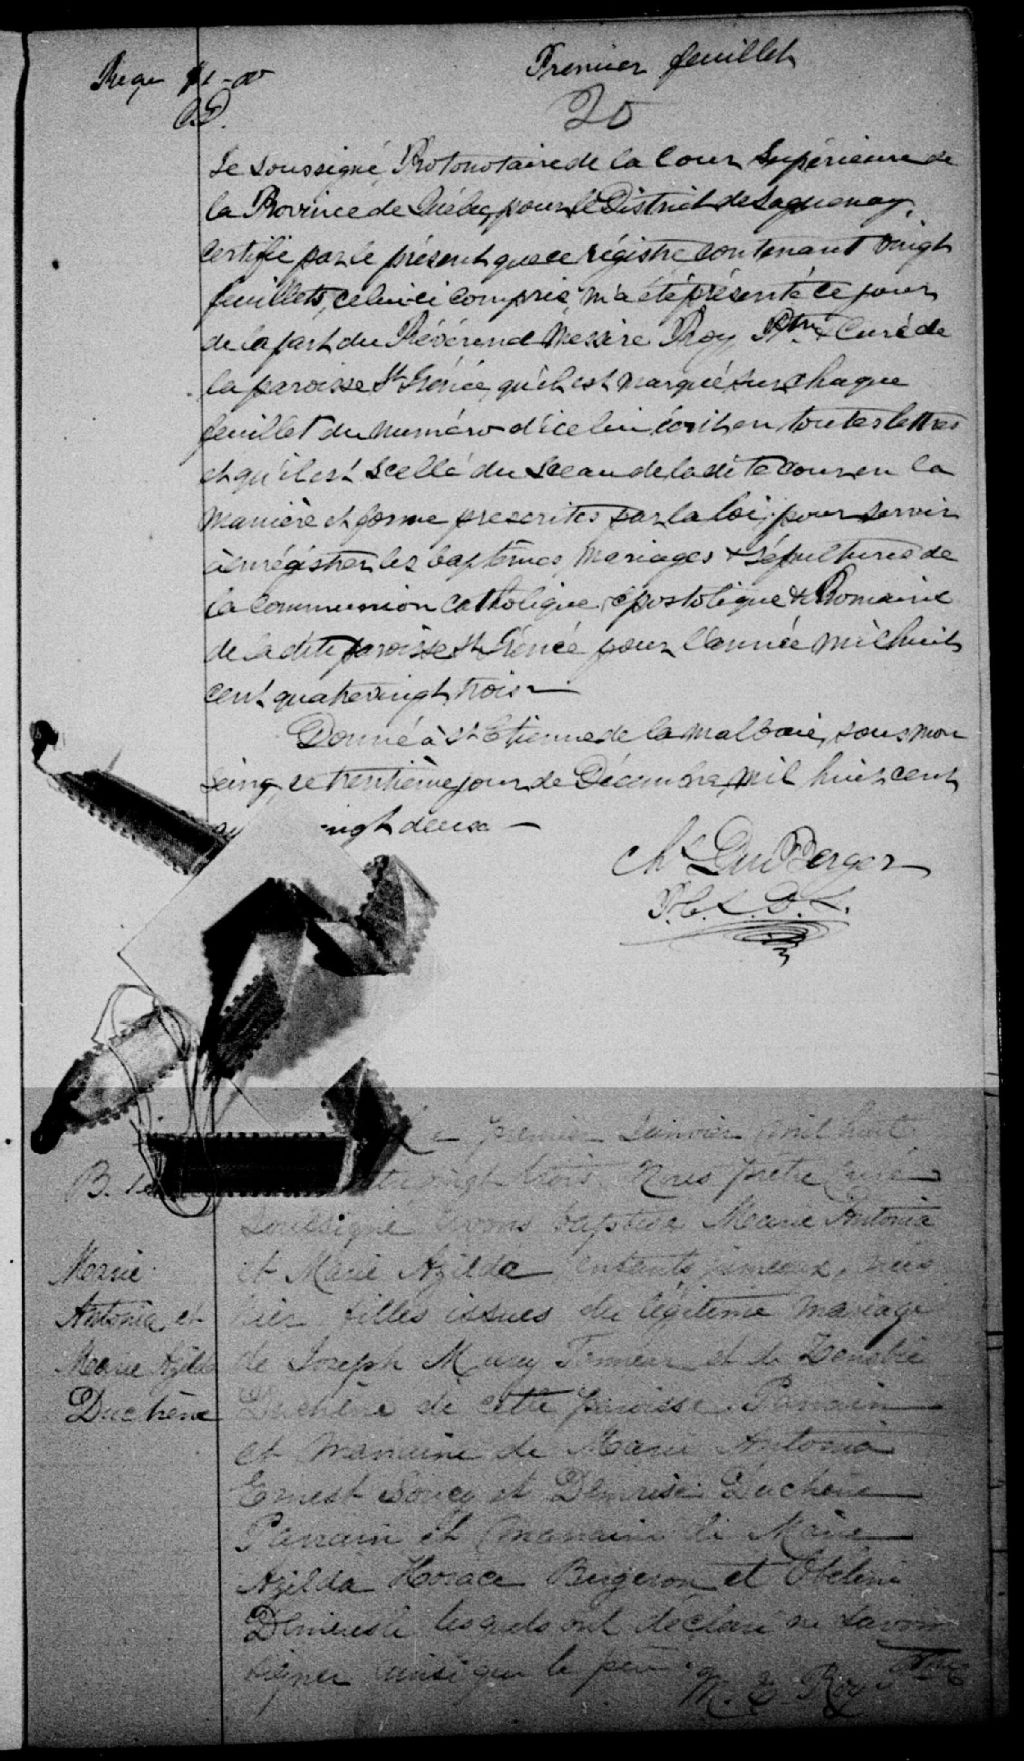 Premier feuillet
20
Le soussigné, Protonotaire de la Cour Supérieure de
la Province de Québec, pour le District de Saguenay,
certifie par le présent que ce régistre contenant vingt
feuillets, celui-ci compris, m'a été présenté ce jour
de la part du Révérend Messire Roy Ptre & Curé de
la paroisse St Irénée, qu'il est marqué sur chaque
feuillet du numéro d'icelui écrit en toutes lettres
et qu'il est scellé du sceau de la dite Cour en la
manière et forme prescrites par la loi, pour servir
à enrégistrer les baptêmes, mariages & sépultures de
la Communion catholique, apostolique & Romaine
de la dite paroisse St Irénée pour l'année mil huit
cent quatrevingt trois
Donné à St Etienne de la Malbaie, sous mon
seing, ce trentième jour de Décembre, mil huit cent
ingt deux
Chs DuBerger
P.C.S.D.S.
Le premier Janvier mil huit
B. 1
trevingt trois Nous prêtre curé
Soussigné avons baptisé Marie Antonia
Marie
Antonia et
Marie Azilda
Duchène
et Marie Azilda enfants jumeaux, nées
hier filles issues du légitime mariage
de Joseph et de Zénobie
Duchène de cette paroisse. Parrain
et marraine de Marie Antonia
Ernest Soucy et Démerise Duchène
Parrain et marraine de Marie
Azilda Horace Bergeron et
lesquels ont déclaré ne savoir
signer ainsi que le père.
M. E. Roy Ptre